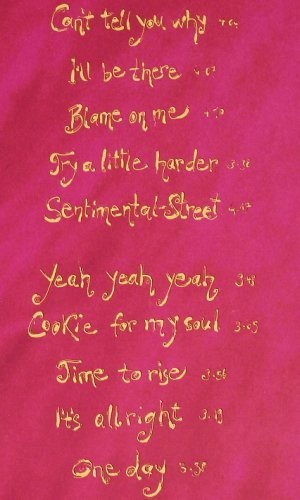 Can't tell you why
I'll be there
Blame on me
Try a little harder 3:38
Sentimental Street
Yeah yeah yeah 3:43
Cookie for my soul 3:05
Time to rise 3:56
It's allright 3:19
One day 5:38